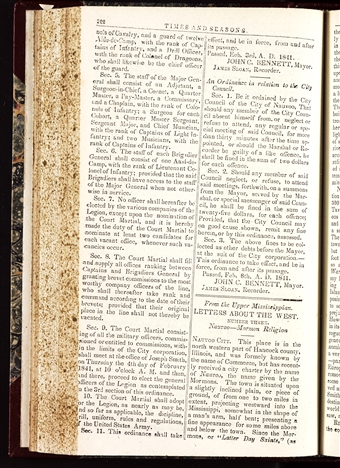 TIMES AND SEASONS.
nels of Cavalry, and a guard of twelve
Aids-de-Camp, with the rank of Cap-
tains of Infantry; and a Drill Officer,
with the rank of Colonel of Dragoons,
who shall likewise be the chief officer
of the guard.
Sec. 5. The staff of the Major Gen-
eral shall consist of an Adjutant, a
Surgeon-in-Chief, a Cornet, a Quarter
Master, a Pay-Master, a Commissary,
and a Chaplain, with the rank of Colo-
nels of Infantry; a Surgeon for each
Cohort, a Quarter Master Sergeant,
Sergeant Major, and Chief Musician,
with the rank of Captains of Light In-
fantry and two Musicians, with the
rank of Captains of Infantry.
Sec. 6. The staff of each Brigadier
General shall consist of one Aaid-de-
Camp, with the rank of Lieutenant Co-
lonel of Infantry; provided that the said
Brigadiers shall have access to the staff
of the Major General when not other-
wise in service.
Sec. 7. No officer shall hereafter be
elected by the various companies of the
Legion, except upon the nomination of
the Court Martial, and it is hereby
made the duty of the Court Martial to
nominate at least two candidates for
each vacant office, whenever such va-
cances occur.
Sec. 8. The Court Martial shall fill
and supply all offices ranking between
Captains and Brigadiers General by
granting brevet commissions to the most
worthy company officers of the line,
who shall thereafter take rank and
command according to the date of their
brevets; provided that their original
place in the line shall not thereby be
vacated.
Sec. 9. The Court Martial consist-
ing of all the military officers, commis-
sioned or entitled to commissions, with-
in the limits of the City corporation,
shall meet at the office of Joseph Smith,
on Thursday the 4th day of February
1841, at 10 o'clock A. M. and then,
and there, proceed to elect the general
officers of the Legion as contemplated
in the 3rd section of this ordinance.
10. The Court Martial shall adopt
for the Legion, as nearly as may be,
and so far as applicable, the discipline,
drill, uniform, rules and regulations,
of the United States Army.
Sec. 11. This ordinance shall take
effect, and be in force, from and after
its passage.
Passed, Feb. 3rd, A. D. 1841.
JOHN C. BENNETT, Mayor.
JAMES SLOAN, Recorder.
An Ordinance in relation to the City
Council.
Sec. 1. Be it ordained by the City
Council of the City of Nauvoo, That
should any member of the City Coun-
cil absent himself from, or neglect or
refuse to attend, any regular or spe-
cial meeting of said Council, for more
than thirty minutes after the time ap-
pointed, or should the Marshal or Re-
corder be guilty of a like offence, he
shall be fined in the sum of two dollars
for each offence.
Sec. 2. Should any member of said
Council neglect, or refuse, to attend
said meetings, forthwith, on a summons
from the Mayor, served by the Mar-
shal, or special messenger of said Coun-
cil, he shall be fined in the sum of
twenty-five dollars, for each offence;
Provided, that the City Council may
on good cause shown, remit any fine
herein, or by this ordinance, assessed.
Sec. 3. The above fines to be col-
lected as other debts before the Mayor,
at the suit of the City corporation.—
This ordinance to take effect, and be in
force, from and after its passage.
Passed, Feb. 8th, A. D. 1841.
JOHN C. BENNETT, Mayor.
JAMES SLOAN, Recorder.
From the Upper Mississippian.
LETTERS ABOUT THE WEST.
NUMBER THREE.
Nauvoo—Mormon Religion
NAUVOO CITY. This place is in the
north western part of Hancock county,
Illinois, and was formerly known by
the name of Commerce, but has recent-
ly received a city charter by the name
of Nauvoo, the name given by the
Mormons. The town is situated upon
a slightly inclined plain, or piece of
ground, of from one to two miles in
extent, projecting westward into the
Mississippi, somewhat in the shape of
a man's arm, half bent; presenting a
fine appearance for some miles above
and below the town. Since the Mor-
mons, or "Latter Day Saints," (as